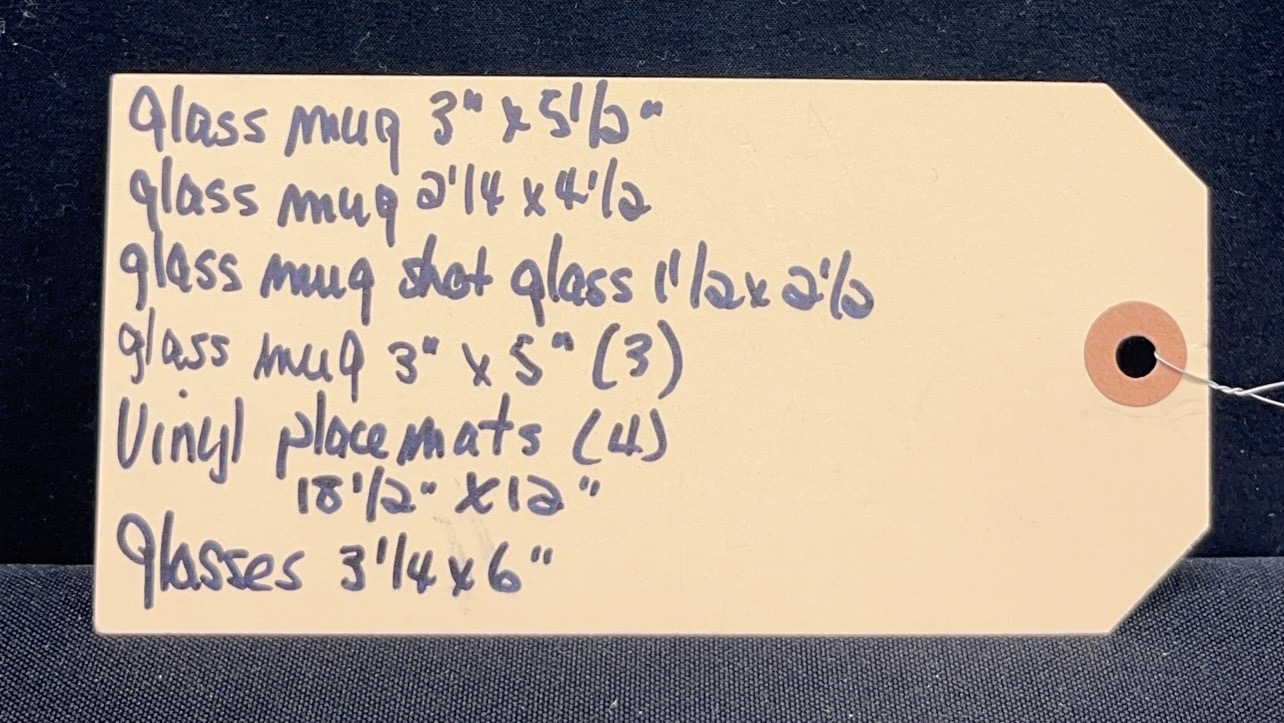 Glass mug 3" x 5 1/2"
glass mug 2 1/4 x 4 1/2
glass mug shot glass 1 1/2 x 2 1/2
glass mug 3" x 5" (3)
Vinyl placemats (4)
18 1/2" x 12"
Glasses 3 1/4 x 6"